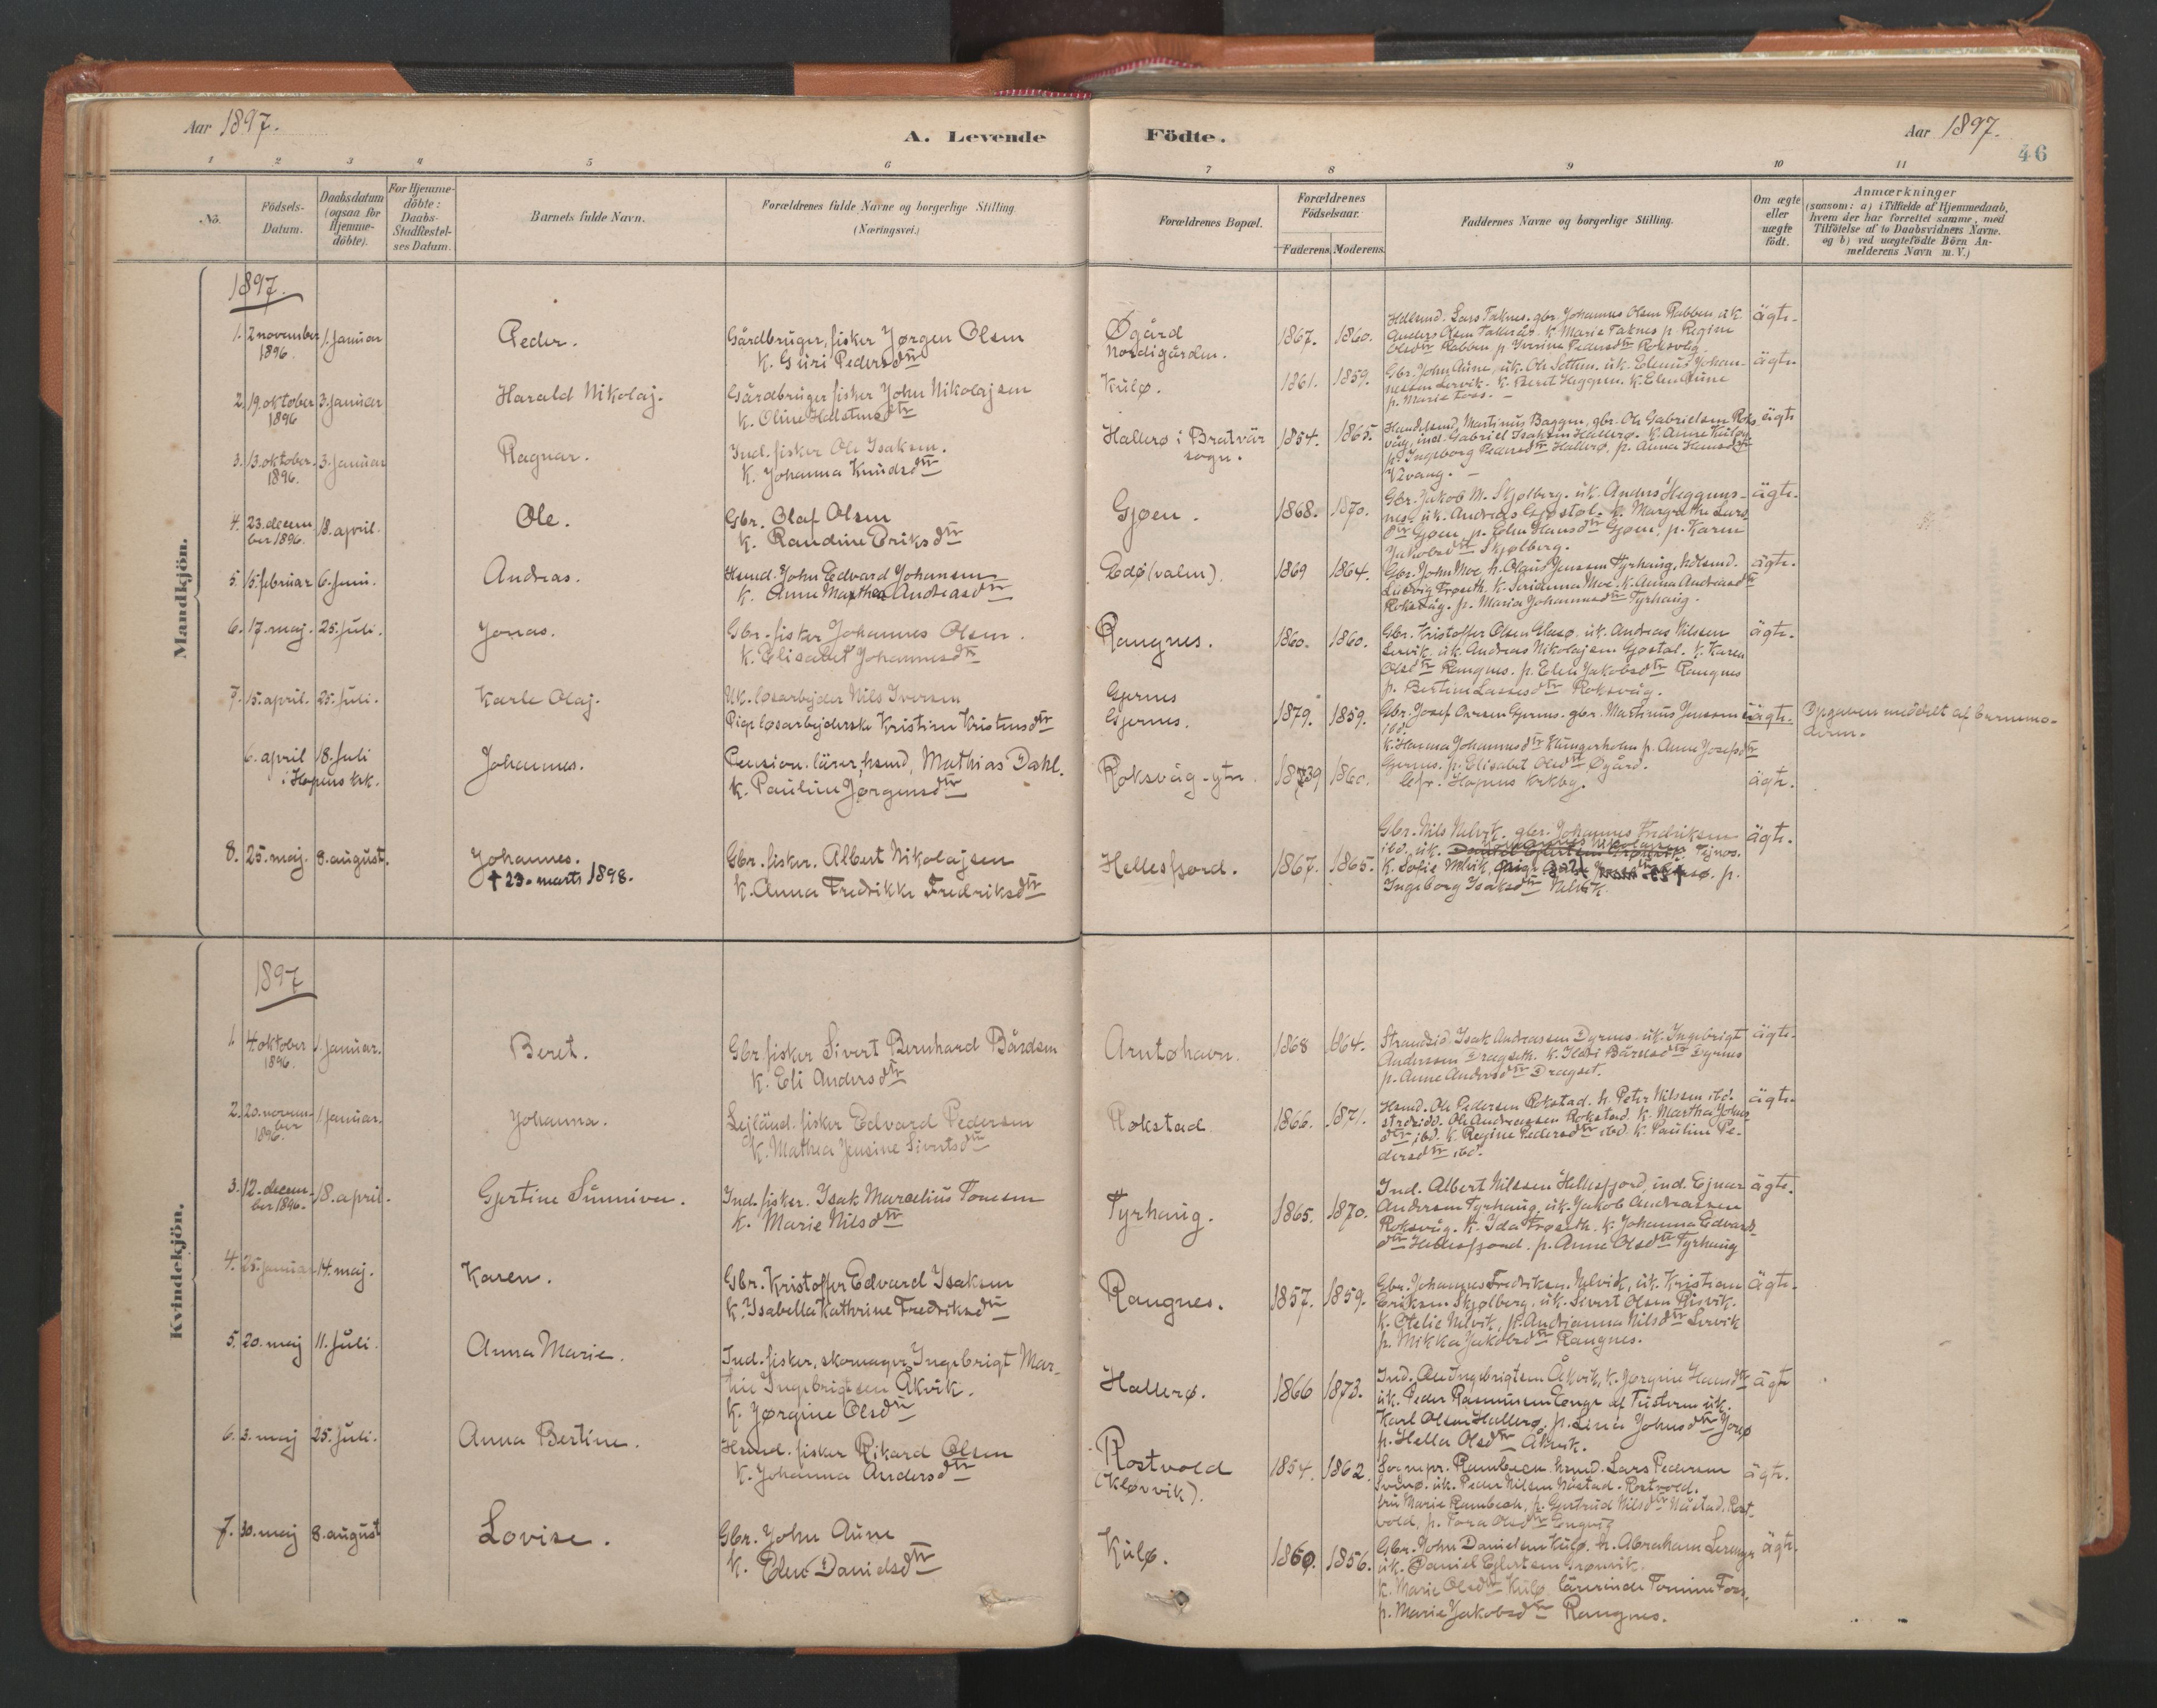 Aar 1897.
A. Levende Födte.
Aar 1897.
46
1 2 3 4 5 6 7 8 9 10 11
No.
Födsels-Datum.
Daabsdatum (ogsaa for Hjemme-döbte).
For Hjemme-döbte: Daabs-Stadfæstel-ses Datum.
Barnets fulde Navn.
Forældrenes fulde Navne og borgerlige Stilling. (Næringsvei.)
Forældrenes Bopæl.
Forældrenes Födselsaar.
Faderens. Moderens.
Faddernes Navne og borgerlige Stilling.
Om ægte eller uægte födt.
Anmærkninger
(saasom: a) i Tilfælde af Hjemmedaab, hvem der har forrettet samme, med Tilföielse af to Daabsvidners Navne. og b) ved uægtefödte Börn An-melderens Navn m. V.)
Mandkjön.
1897.
1. 2 november 1896. 1. januar Peder.
Gårdbruger, fisker Jørgen Olsen
k. Guri Pedersdtr
Øgård Nordigården. 1867. 1860.
Anders Olsen k. Marie Taknes p. Regine
Olsdtr Rabben, p. Iverine Pedersdtr Roksvåg.
ägte.
2. 19. oktober 1896 3. januar Harald Nikolaj.
Gårdbruger fisker John Nikolajsen
k. Oline Halstensdtr
Kulø. 1861. 1859.
Gbr. John Aune, uk. Ole Settem. uk. Edenus Johan-
nessen Lervik. k. Beret Heggem. k. Elen Aune
p. Marie Foss.
ägte.
3. 13. oktober 1896. 3. januar Ragnar.
Ind. fisker Ole Isaksen.
k. Johanna Knudsdtr
Hallerø i Bratvär sogn. 1854. 1865.
Handelsmd, Martinus Bagøen, gbr. Ole Gabrielsen Roks-
våg, ind. Gabriel Isaksen Hallerø. k. Anne Kuløy
p. Ingeborg Pedersdtr Hallerø, p. Anna Hansdtr
ägte
4. 23. decem ber 1896. 18. april. Ole.
Gbr. Olaf Olsen
k. Randine Eriksdtr
Gjøen. 1868. 1870.
Gbr. Jakob M. Skjølberg. uk. Anders Heggems-
nes. uk. Andreas Gjøstøl. k. Margrethe Lars-
dtr Gjøen, p. Elen Hansdtr Gjøen, p. Karen
Jakobsdtr Skjølberg.
ägte.
5. 15. februar 6. juni. Andreas.
Hsmd. John Edvard Johansen
k. Anne Marthea Andreasdtr
Edø (valen). 1869 1864.
Gbr. John Moe h. Olaus Jenssen Tyrhaug, hdlsmd.
Ludvig Frøseth. k. Serianna Moe. k. Anna Andreasdtr
Roksvåg. p. Maria Johannesdtr Tyrhaug.
ägte.
6. 17. maj. 25. juli. Jonas.
Gbr. fisker Johannes Olsen.
k. Elisabet Johannesdtr
Rangnes. 1860. 1860.
Gbr. Kristoffer Olsen Glasø. uk. Andreas Nilssen
Lervik. uk. Andreas Nikolajsen Gjøstøl. k. Karen
Olsdtr Rangnes. p. Elen Jakobsdtr Rangnes
p. Bertine Lassesdtr Roksvåg.
ägte.
7. 15. april. 25. juli. Karle Olaj.
Uk. løsarbejder Nils Iversen
Pige løsarbejderske Kristine Kristensdtr
Gjernes Gjernes. 1879. 1859.
Gbr. Josef Aresen Gjernes. gbr. Martinus Jenssen
ibd.
k. Hanna Johannesdtr Kungerholm p. Anne Josefsdtr
Gjernes. p. Elisabet Olsdtr Øgård.
uägte.
Opgaven meddelt af barnemo-
deren.
6. april 18. juli i Hopens krk. Johannes.
Pension. lærer, hsmd, Mathias Dahl.
k. Pauline Jørgensdtr
Roksvåg-ytre. 1839 1860.
Cfr. Hopens krkbg.
ägte.
8. 25. maj. 8. august. Johannes.
† 23. marts 1898.
Gbr. fisker. Albert Nikolajsen
k. Anna Fredrikke Fredriksdtr
Hellesfjord. 1867. 1865.
Gbr. Nils Nelvik. gbr. Johannes Fredriksen
ibd. uk. Johannes Nikolajsen
k. Sofie Nelvik, p.
Ingeborg Isaksdtr Nelvik.
ägte.
Kvindekjön.
1897
1. 4 oktober 1896. 1 januar. Beret.
Gbr. fisker Sivert Bernhard Bårdsen
k. Eli Andersdtr
Arntøhavn. 1868 1864.
Strandsid. Isak Andreassen Dyrnes. uk. Ingebrigt
Anderssen Dragseth. k. Ildri Bårdsdtr Dyrnes
p. Anne Andersdtr Dragset.
ägte.
2. 20. novem-ber 1896. 1. januar. Johanna.
Lejländ. fisker Edvard Pedersen
k. Mathea Jensine Sivertsdtr
Rokstad. 1866. 1871.
Hsmd. Ole Pedersen Rokstad. h. Peter Nilssen ibd.
strdsidd. Ole Andreassen Rokstad. k. Martha Johns-
dtr ibd. k. Regine Pedersdtr ibd. k. Pauline Pe-
dersdtr ibd.
ägte
3. 12. decem-ber 1896. 18. april. Gjertine Sunniva.
Ind. fisker. Isak Marcelius Tønesen
k. Marie Nilsdtr
Tyrhaug. 1865. 1870.
Ind. Albert Nilssen Hellesfjord, ind. Ejnar
Andersen Tyrhaug, uk. Jakob Andreassen
Roksvåg. k. Ida Frøseth. k. Johanna Edvards-
dtr Hellesfjord. p. Anne Olsdtr Tyrhaug
ägte.
4. 25. januar 14. maj. Karen.
Gbr. Kristoffer Edvard Isaksen
k. Isabella Kathrine Fredriksdtr
Rangnes. 1857. 1859.
Gbr. Johannes Fredriksen. Nelvik, uk. Kristian
Eriksen Skjølberg, uk. Sivert Olsen Risvik.
k. Otelie Nelvik, p. Andrianna Nilsdtr Lervik
p. Mikka Jakobsdtr Rangnes.
ägte.
5. 20. maj 11. juli. Anna Marie.
Ind. fisker, skomager Ingebrigt Mar-
tin Ingebrigtsen Åkvik.
k. Jørgine Olsdtr
Hallerø. 1866 1873.
Ind. Ole Ingebrigtsen Åkvik, k. Jørgine Hansdtr
uk. Peder Rasmussen Lengs af Tusteren uk.
Karl Olsen Hallerø, p. Lina Johnsdtr Jørsø
p. Hella Olsdtr Åkvik.
ägte
6. 3. maj 25. juli. Anna Bertine.
Hsmd. fisker Rikard Olsen
k. Johanna Andersdtr
Rostvold (Kløvvik). 1854. 1862.
Sognepr. Rambech hsmd. Lars Pedersen
Svinø. uk. Peder Nilsen Nåstad. Rostvold.
fru Marie Rambech, p. Gjertrud Nilsdtr Nåstad. Rost-
vold, p. Tora Olsdtr Engvig
ägte.
7. 30. maj 8. august Lovise.
Gbr. John Aune
k. Elen Danielsdtr
Kulø. 1860. 1856.
Gbr. John Danielsen Kulø. h. Abraham
uk. Daniel Eilertsen Grønvik.
k. Marie Olsdtr Kulø. lärerinde Tomine Foss,
p. Marie Jakobsdtr Rangnes.
ägte.